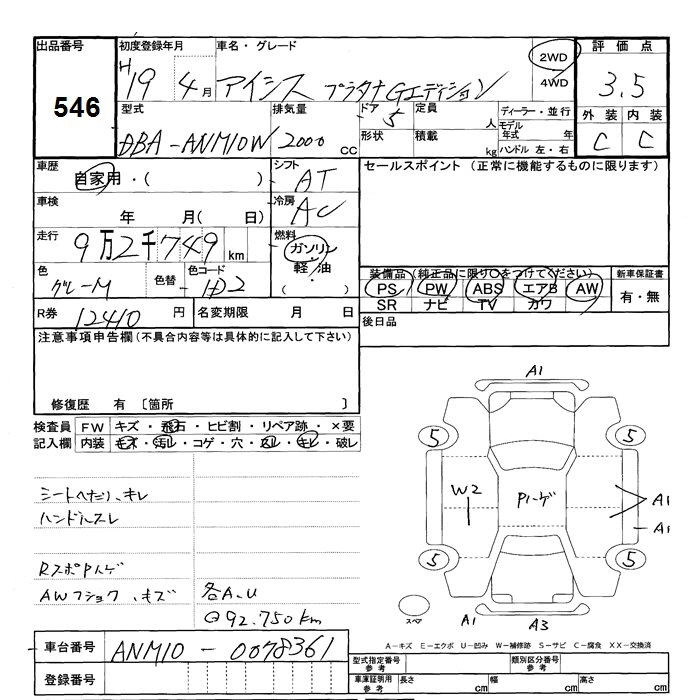 出品番号 初度登録年月 車名・グレード 2WD 評価点
546 H19 4月 アイシス プラタナGエディション 4WD 3.5
型式 排気量 ドア 定員 ディーラー・並行 外装 内装
DBA-ANM10W 2000 CC 5 人 モデル年式 年 C C
形状 積載 kg ハンドル 左・右
車歴 シフト セールスポイント (正常に機能するものに限ります)
自家用・( ) AT
車検 冷房
年 月( 日) AC
走行 燃料
9万2千749km ガソリン
軽油
・
( )
色 色替 色コード 装備品 (純正品に限り○をつけてください) 新車保証書
グレーM 1D2 PS PW ABS エアB AW 有・無
SR ナビ TV カワ
R券 12410円 名変期限 月 日 後日品
注意事項申告欄(不具合内容等は具体的に記入して下さい)
修復歴 有 〔箇所 〕
検査員 FW キズ・飛石・ヒビ割・リペア跡・×要
記入欄 内装 モズ・汚レ・コゲ・穴・スレ・キレ・破レ
シートヘたり、キレ
ハンドルスレ
RスポPハゲ
AWフショク、キズ 各A.U
@92.750km
A1
5 5
W2 Pハゲ A1
A1
5 5
スペア A1 A3
A-キズ E-エクボ U-凹み W-補修跡 S-サビ C-腐食 XX-交換済
車台番号 ANM10-0078361
登録番号
型式指定番号 参考 類別区分番号 参考
車庫証明用 参考 長さ cm 幅 cm 高さ cm